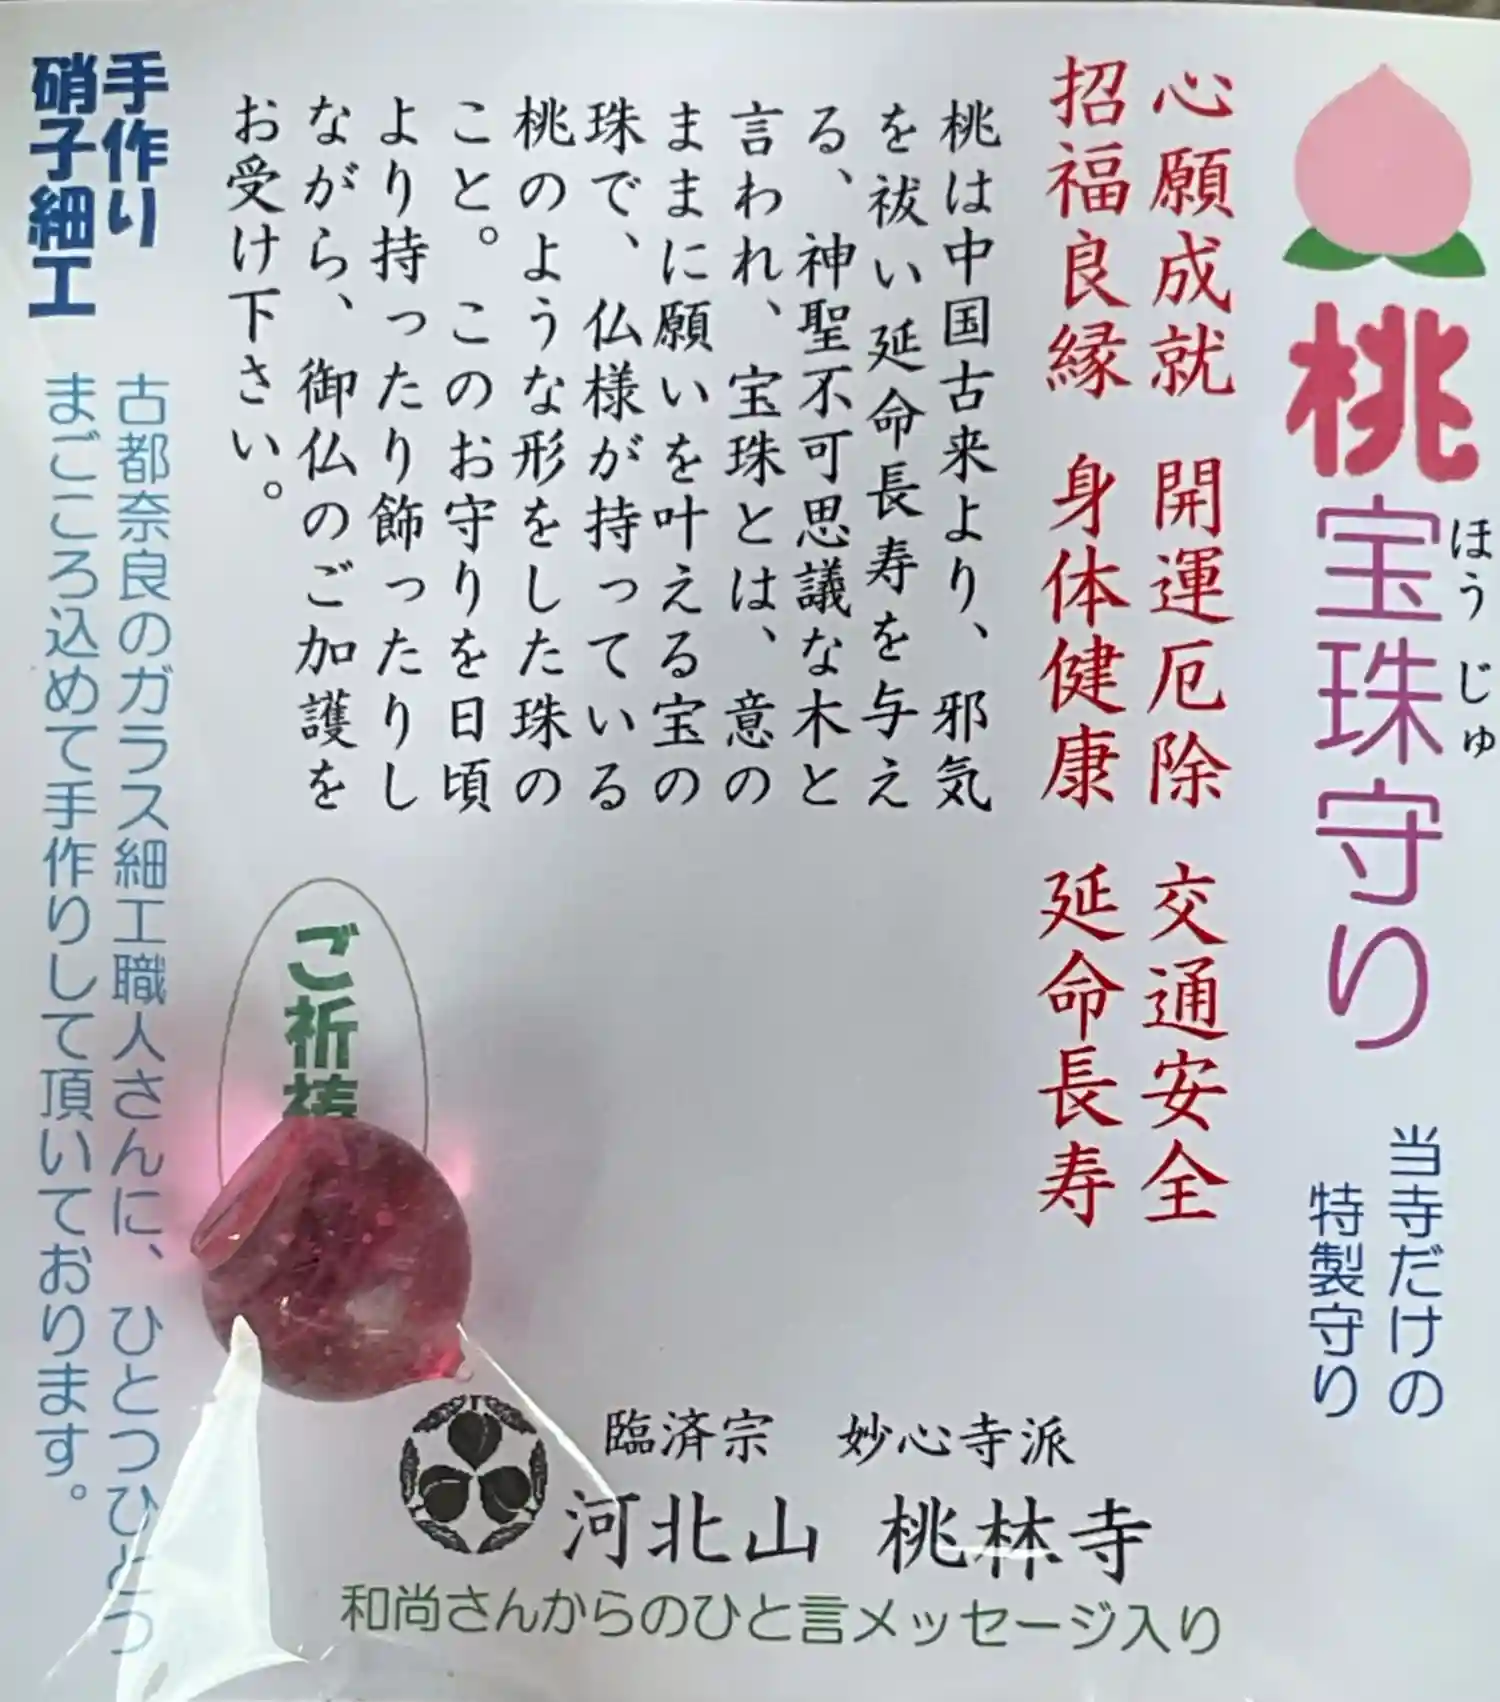 桃宝珠守り
ほうじゅ
当寺だけの
特製守り
心願成就 開運厄除 交通安全
招福良縁 身体健康 延命長寿
桃は中国古来より、邪気
を祓い延命長寿を与え
る、神聖不可思議な木と
言われ、宝珠とは、意の
ままに願いを叶える宝の
珠で、仏様が持っている
桃のような形をした珠の
こと。このお守りを日頃
より持ったり飾ったりし
ながら、御仏のご加護を
お受け下さい。
ご祈祷
手作り
硝子細工
古都奈良のガラス細工職人さんに、ひとつひとつ
まごころ込めて手作りして頂いております。
臨済宗 妙心寺派
河北山 桃林寺
和尚さんからのひと言メッセージ入り